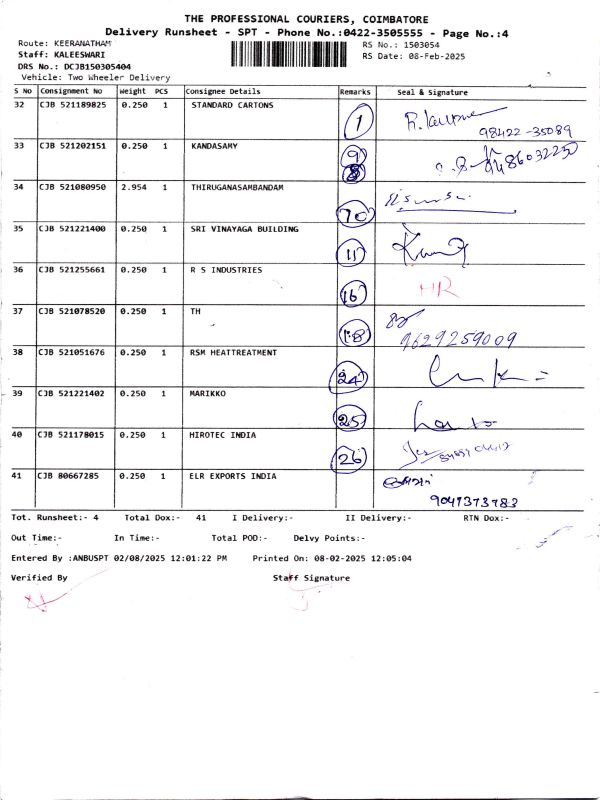 THE PROFESSIONAL COURIERS, COIMBATORE
Delivery Runsheet - SPT - Phone No.:0422-3505555 - Page No.:4
Route: KEERANATHAM RS No.: 1503054
Staff: KALEESWARI RS Date: 08-Feb-2025
DRS No.: DCJB150305404
Vehicle: Two Wheeler Delivery
S No Consignment No Weight PCS Consignee Details Remarks Seal & Signature
32 CJB 521189825 0.250 1 STANDARD CARTONS 1
98422-35089
33 CJB 521202151 0.250 1 KANDASAMY 9
8
34 CJB 521080950 2.954 1 THIRUGANASAMBANDAM
70
35 CJB 521221400 0.250 1 SRI VINAYAGA BUILDING
11
36 CJB 521255661 0.250 1 R S INDUSTRIES
16 HR
37 CJB 521078520 0.250 1 TH
18 9629259009
38 CJB 521051676 0.250 1 RSM HEATTREATMENT
24
39 CJB 521221402 0.250 1 MARIKKO
25
40 CJB 521178015 0.250 1 HIROTEC INDIA
26
41 CJB 80667285 0.250 1 ELR EXPORTS INDIA
9047373783
Tot. Runsheet:- 4 Total Dox:- 41 I Delivery:- II Delivery:- RTN Dox:-
Out Time:- In Time:- Total POD:- Delvy Points:-
Entered By :ANBUSPT 02/08/2025 12:01:22 PM Printed On: 08-02-2025 12:05:04
Verified By Staff Signature